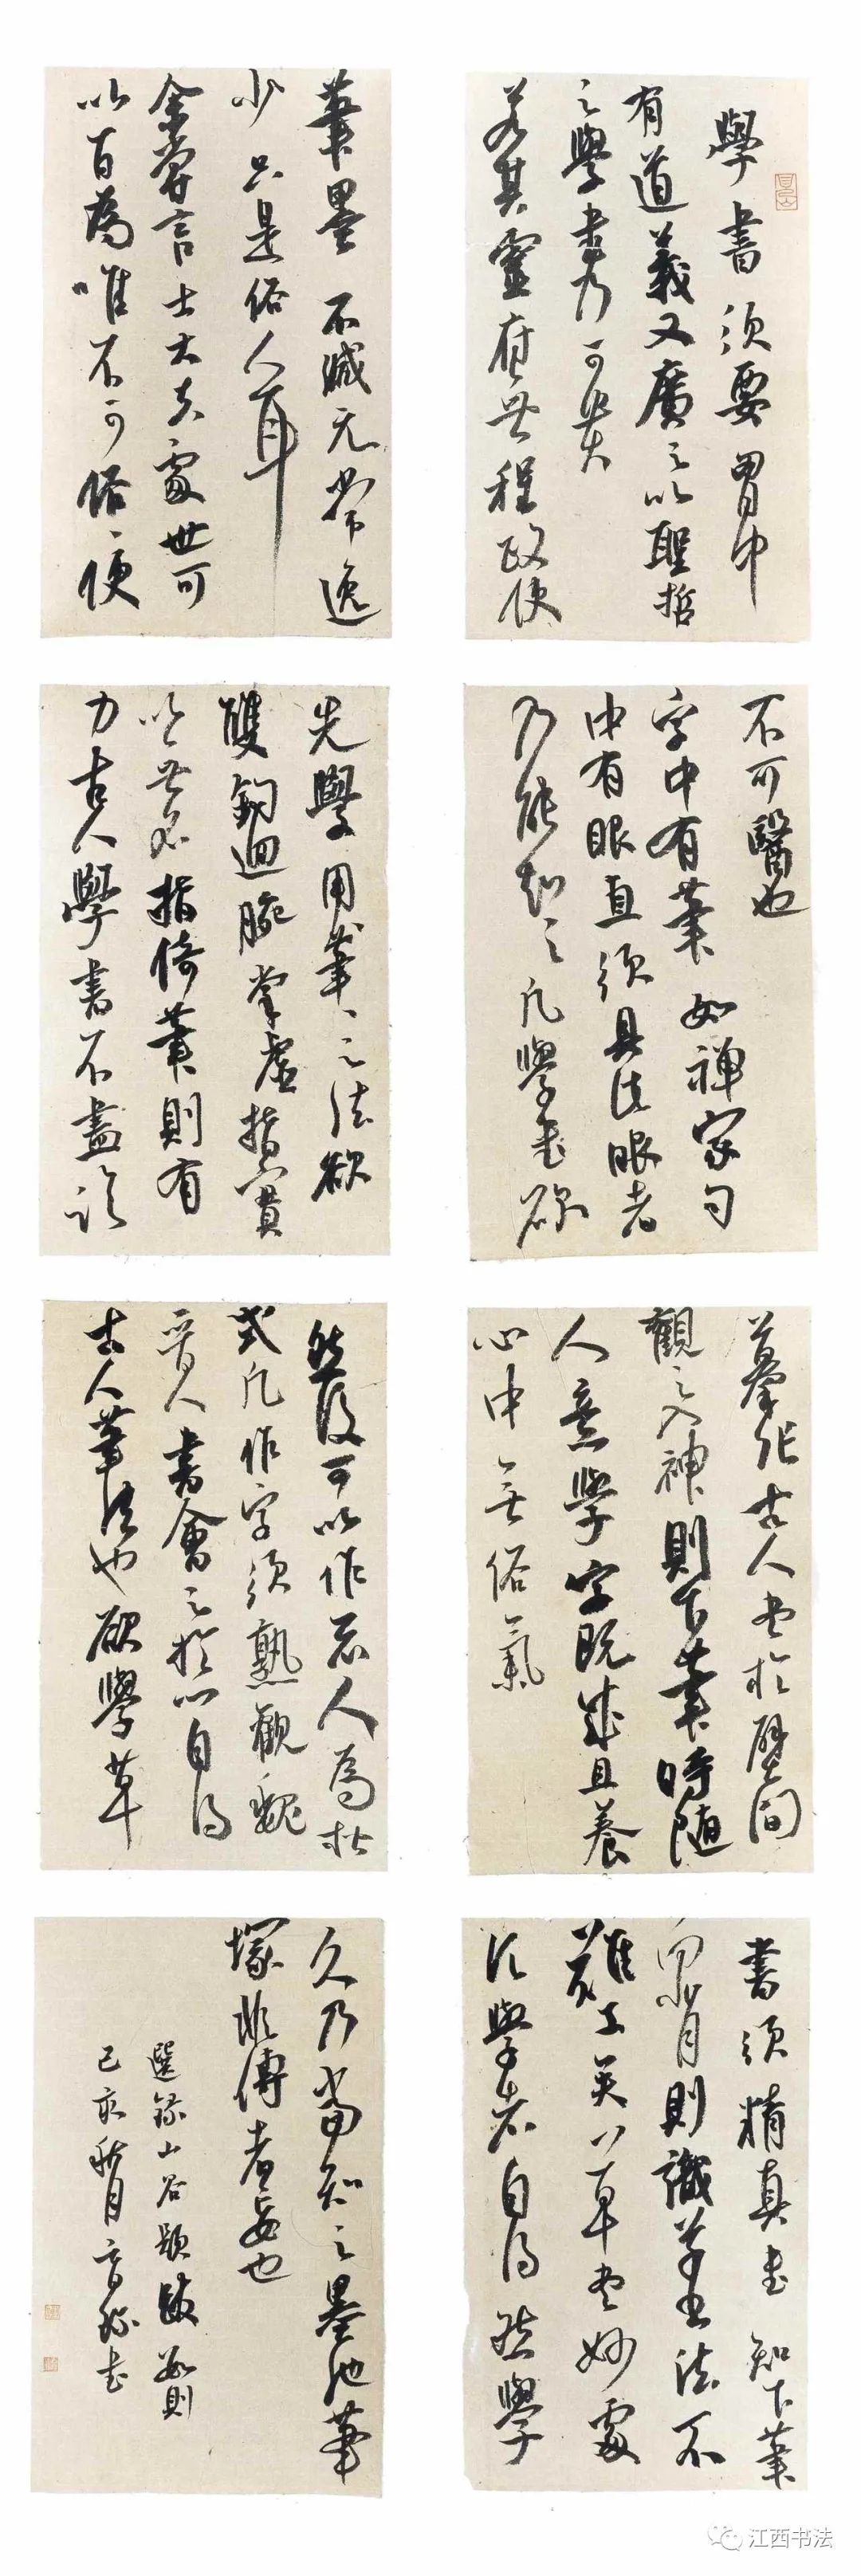 學書須要胷中
有道義又廣之以聖哲
之學書乃可貴
若其靈府無程政使
筆墨不減元常逸
少只是俗人耳
余嘗言士大夫處世可
以百為唯不可俗、便
不可醫也
字中有筆如禪家句
中有眼直須具法眼者
乃能知之凡學書欲
先學用筆、之法欲
雙鉤迴腕掌虛指實
以無名指倚筆則有
力古人學書不盡臨
摹張古人書於壁間
觀之入神則下筆時隨
人意學字既成且養
心中無俗氣
然後可以作示人為楷
式凡作字須熟觀魏
晉人書會之於心自得
古人筆法也欲學草
書須精真書知下筆
向背則識草書法不
難工矣草書妙處
須學者自得然學
久乃當知之墨池筆
塚非傳者妄也
選錄山谷題跋數則
己亥秋月書
江西书法